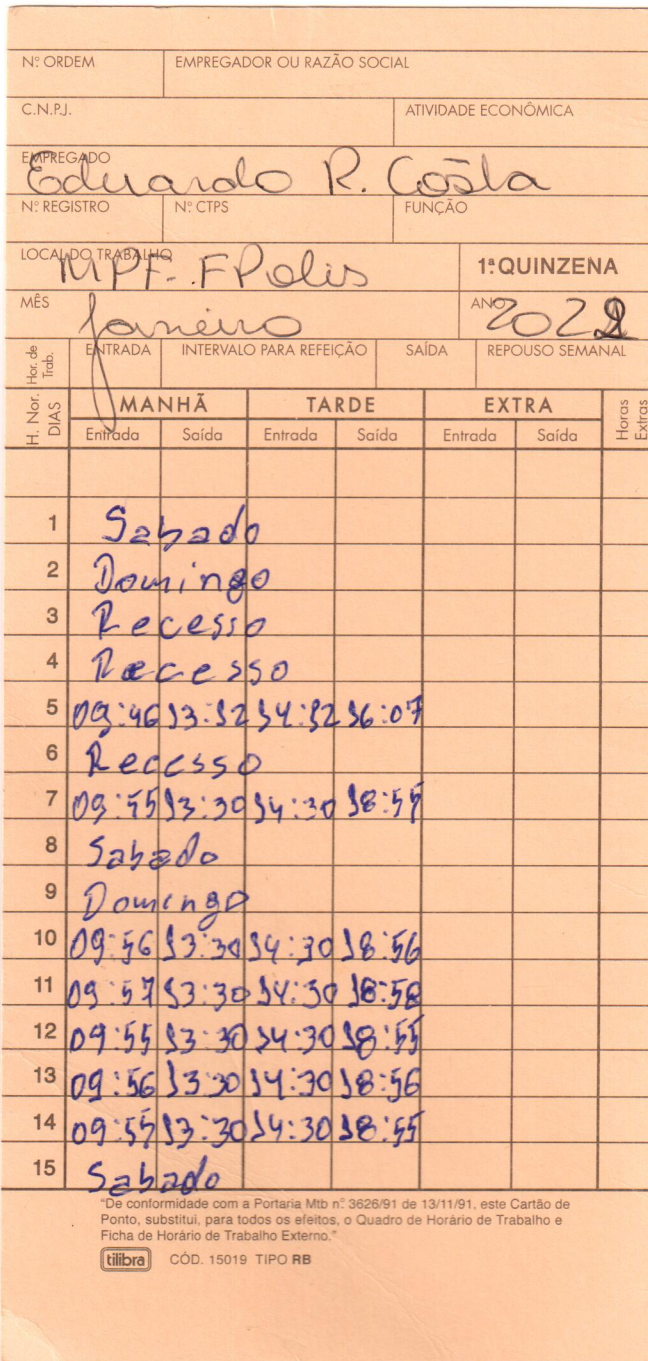 Nº ORDEM EMPREGADOR OU RAZÃO SOCIAL
C.N.P.J. ATIVIDADE ECONÔMICA
EMPREGADO
Eduardo R. Costa
Nº REGISTRO Nº CTPS FUNÇÃO
LOCAL DO TRABALHO 1ª QUINZENA
MPF - FPolis
MÊS ANO
Janeiro 2022
Hor. de Trab. ENTRADA INTERVALO PARA REFEIÇÃO SAÍDA REPOUSO SEMANAL
H. Nor. DIAS MANHÃ TARDE EXTRA Horas Extras
Entrada Saída Entrada Saída Entrada Saída
1 Sabado
2 Domingo
3 Recesso
4 Recesso
5 09:46 13:12 14:12 16:07
6 Recesso
7 09:55 13:30 14:30 18:55
8 Sabado
9 Domingo
10 09:56 13:30 14:30 18:56
11 09:57 13:30 14:30 18:58
12 09:55 13:30 14:30 18:55
13 09:56 13:30 14:30 18:56
14 09:55 13:30 14:30 18:55
15 Sabado
"De conformidade com a Portaria Mtb nº 3626/91 de 13/11/91, este Cartão de
Ponto, substitui, para todos os efeitos, o Quadro de Horário de Trabalho e
Ficha de Horário de Trabalho Externo."
tilibra CÓD. 15019 TIPO RB